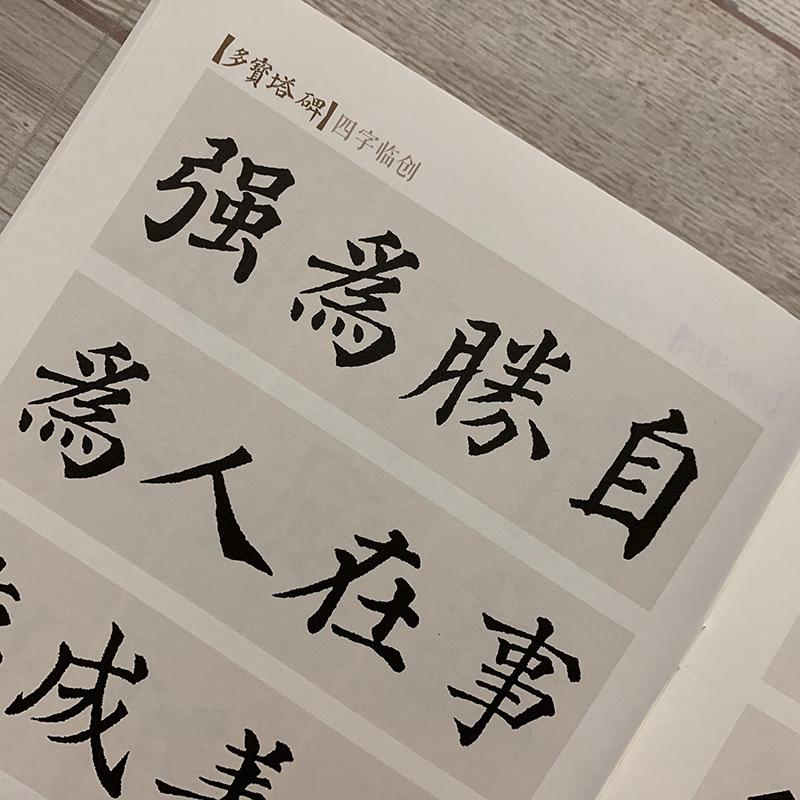 【多寶塔碑】四字临创
自勝爲强
事在人爲
成